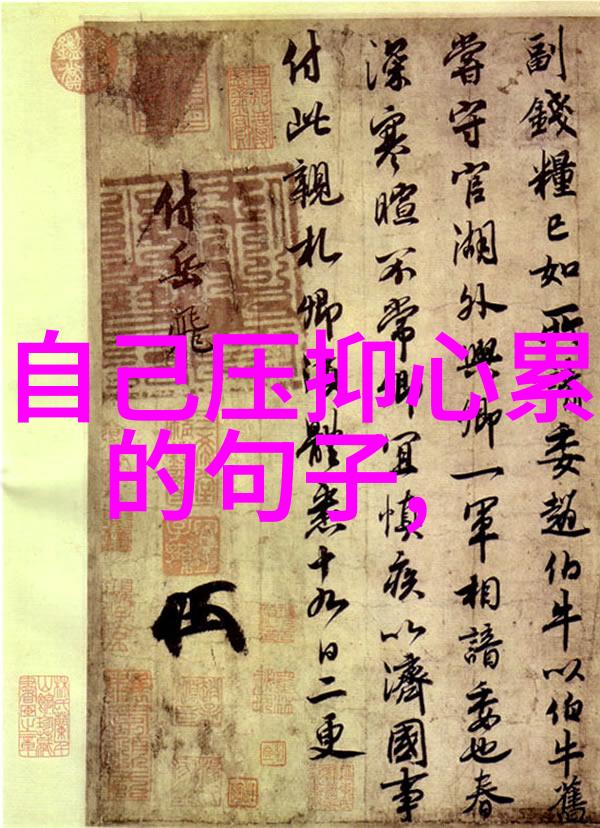 自己压抑心累
的句子,
副錢糧已如所委趙伯牛以伯牛舊
嘗守官湖外與卿一軍相諳委也春
深寒暄不常卿宜慎疾以濟國事
付此親札卿須體悉十九日二更
付岳飛